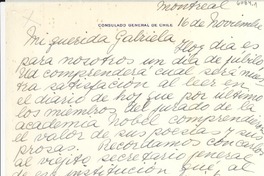 Montreal
CONSULADO GENERAL DE CHILE
16 de Noviembre
Mi querida Gabriela,
Hoy día es
para nosotros un día de júbilo
Ud comprenderá cual será nues
tra satisfacción al leer en
el diario de hoy que por ultimo
los miembros del jurado de la
academia Nobel comprenden
el valor de sus poesías y sus
prosas. Recordamos con Carlos
al viejito secretario general
de esa institución que, al